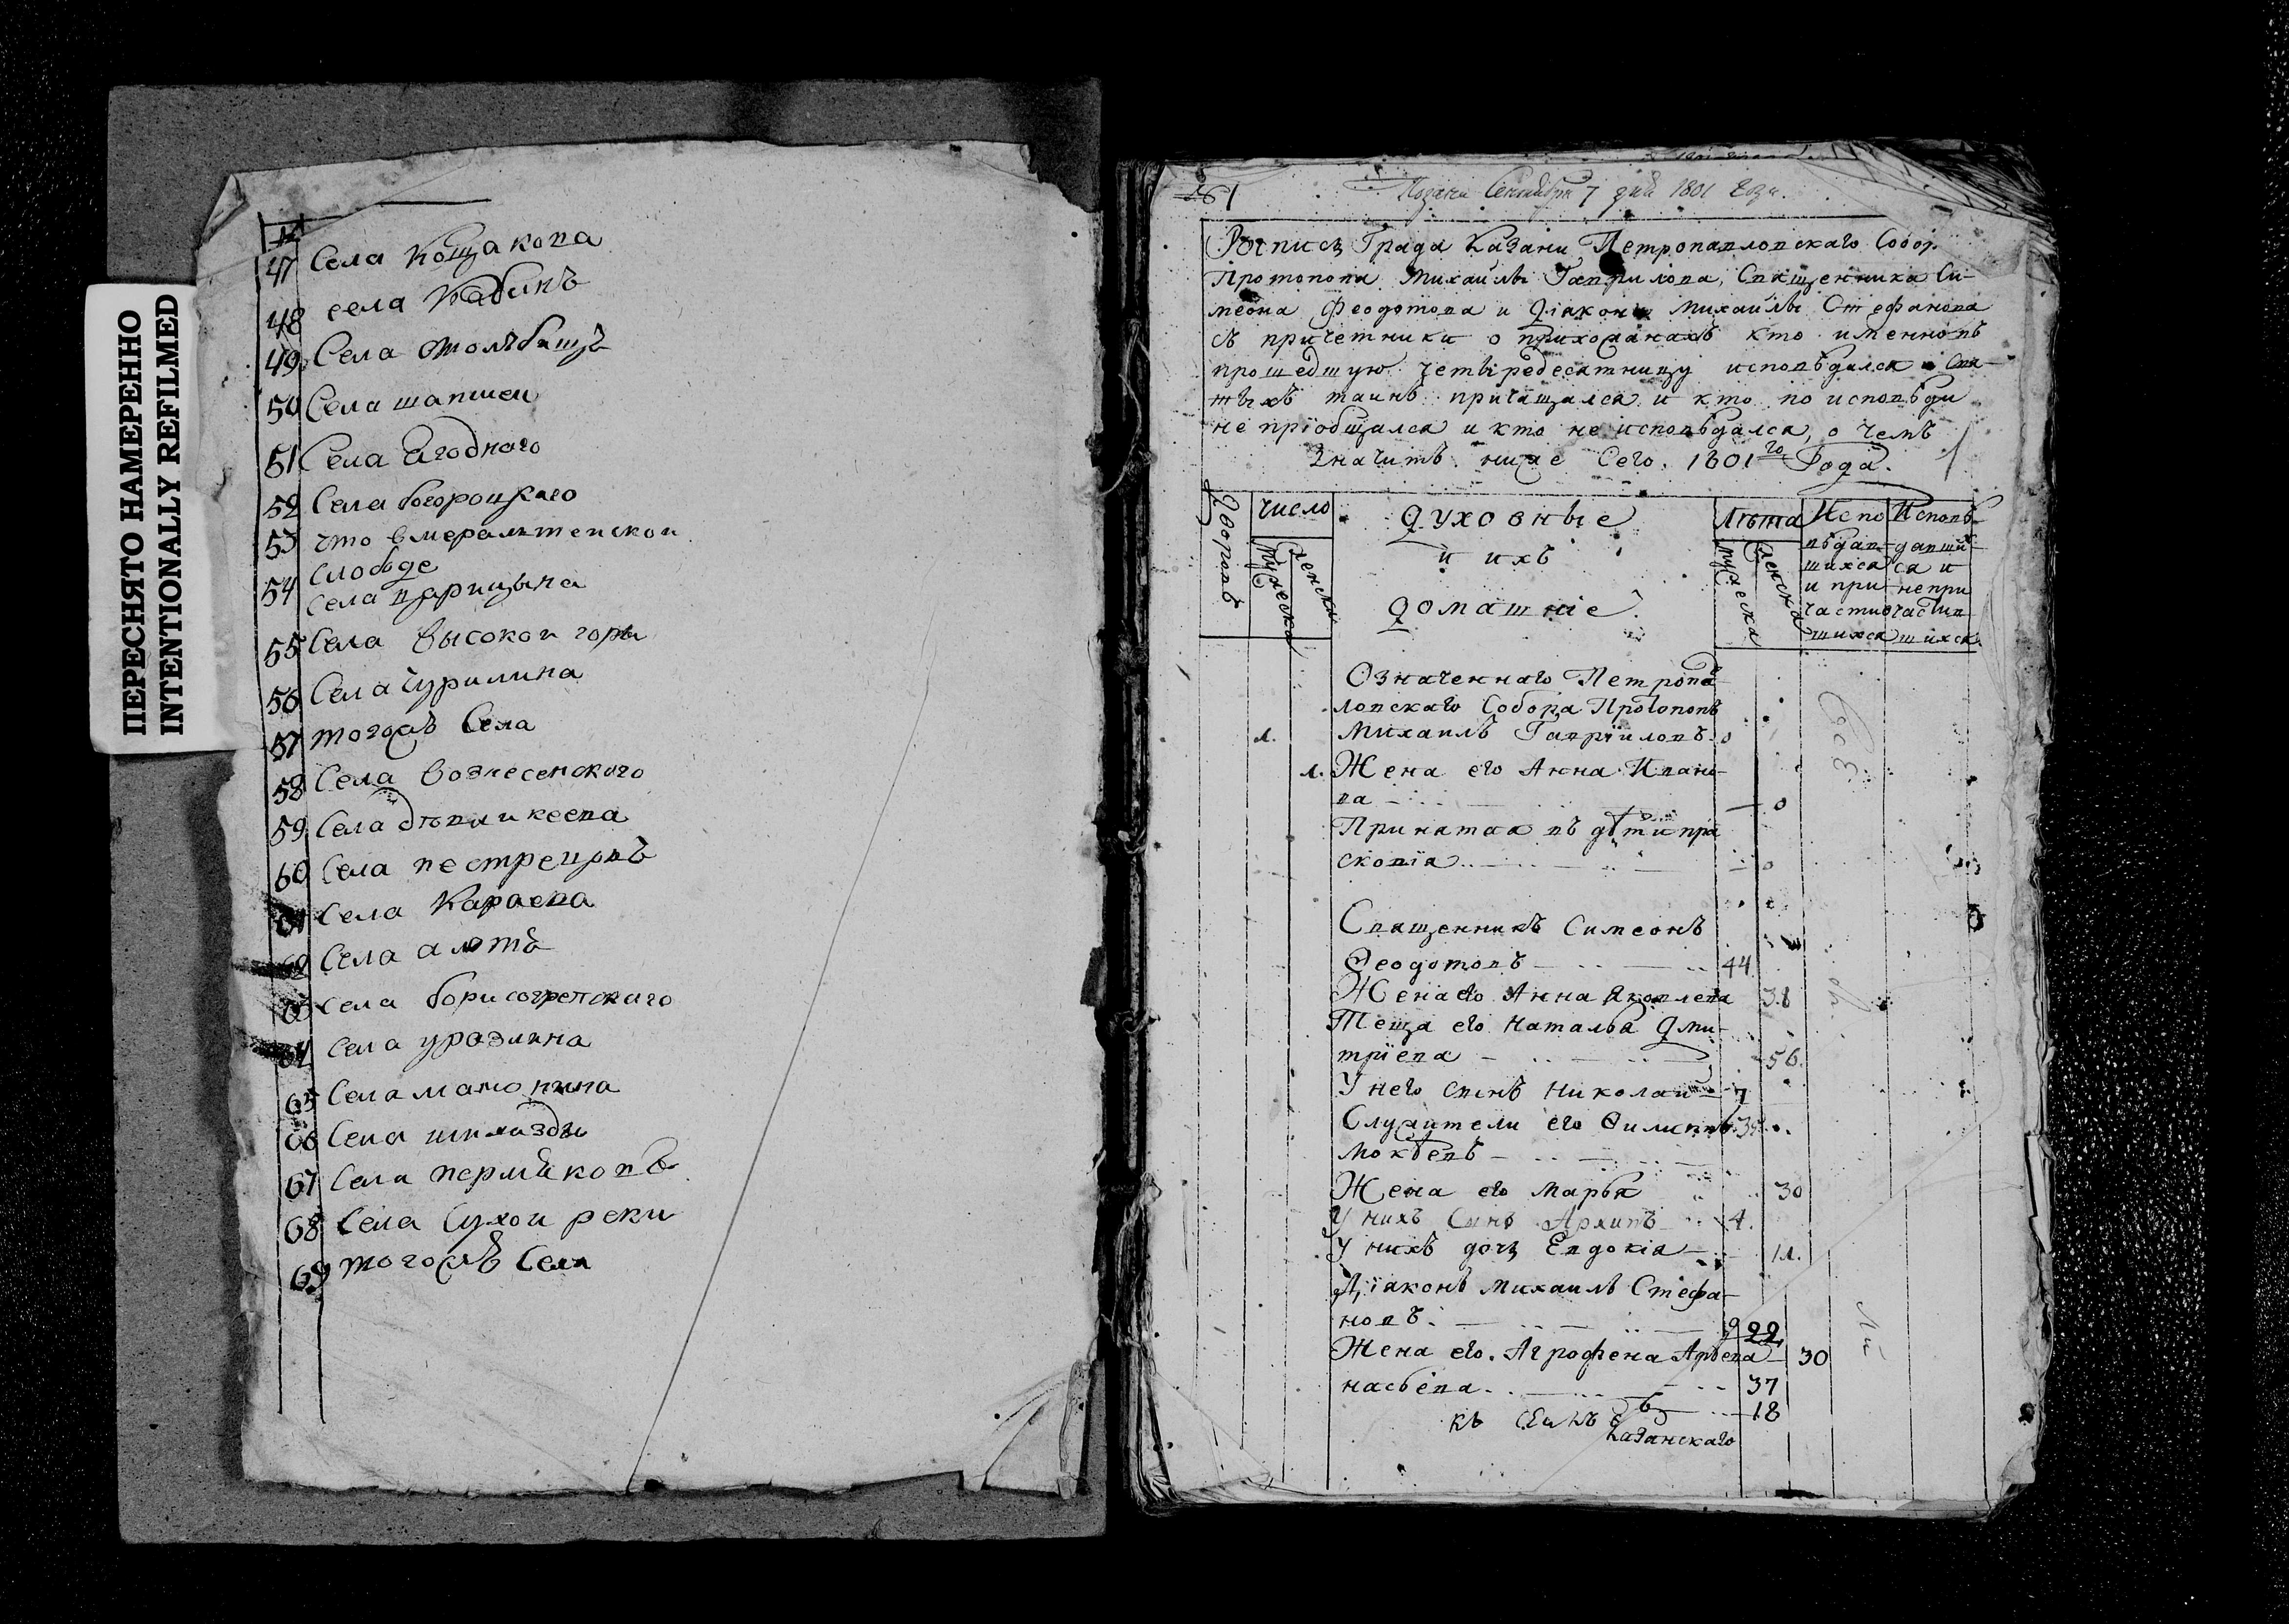 ПЕРЕСНЯТО НАМЕРЕННО
INTENTIONALLY REFILMED
47 Села Кощакова
48 села Кабанъ
49 Села Столъбищъ
50 Села шапшеи
51 Села Ягоднаго
52 Села богороцкаго
53 что вмералтеискои
слободе
54 села царицына
55 Села высокои горы
56 Села Чурилина
57 тогожъ Села
58 Села вознесенскаго
59 Села девликеева
60 Села пестрецовъ
61 Села Караева
62 Села алатъ
63 Села борисогребскаго
64 Села уразлина
65 Села мамонина
66 Села шигаизды
67 Села пермяковъ
68 Села Сухои реки
69 тогожъ Села
Сентября 7 дня 1801 года
Роспись Града Казани Петропавловскаго Собор.
Протопопа Михаилы Гаврилова, Священника Си-
меона Феодотова и Діакона Михаилы Стефанова
съ причетники о прихожанахъ кто именновъ
прошедшую четыредесятницу исповѣдался и Свя-
тыхъ таинъ причащался и кто по исповѣди
не пріобщался и кто не исповѣдался, о чемъ
Значитъ ниже Сего. 1801го Года.
Дворовъ
Число
мужеска
женска
духовные
и ихъ
домашніе.
Лѣта
мужеска
женска
Испо
вѣдав-
шихся
и при
частив
шихся
Исповѣ-
давши
ся и
непри
частив
шихся
Означеннаго Петропа
ловскаго Собора Протопопъ
Михаилъ Гавріиловъ.
Жена его Анна Ивано-
ва
Принятая въ дѣти пра
сковія
Священникъ Симеонъ
Феодотовъ 44
Жена его Анна Яковлева 38
Теща его Наталья Дми-
тріева 56
У него сынъ Николаи 7
Служители его
Жена его Марья 30
У нихъ Сынъ Архипъ 4
У нихъ дочь Евдокіа
Діаконъ Михаилъ Стефа-
новъ. 22
Жена его Агрофена 30
насьева. 37
18
Казанскаго